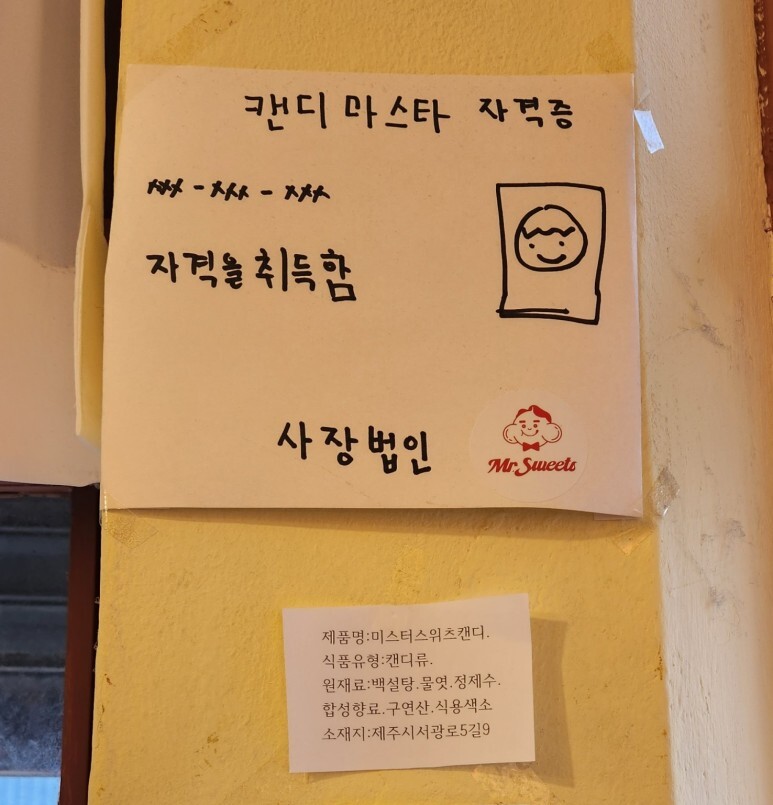 캔디 마스타 자격증
xxx - xxx - xxx
자격을 취득함
사장법인
Mr. Sweets
제품명:미스터스위츠캔디.
식품유형:캔디류.
원재료:백설탕.물엿.정제수.
합성향료.구연산.식용색소
소재지:제주시서광로5길9